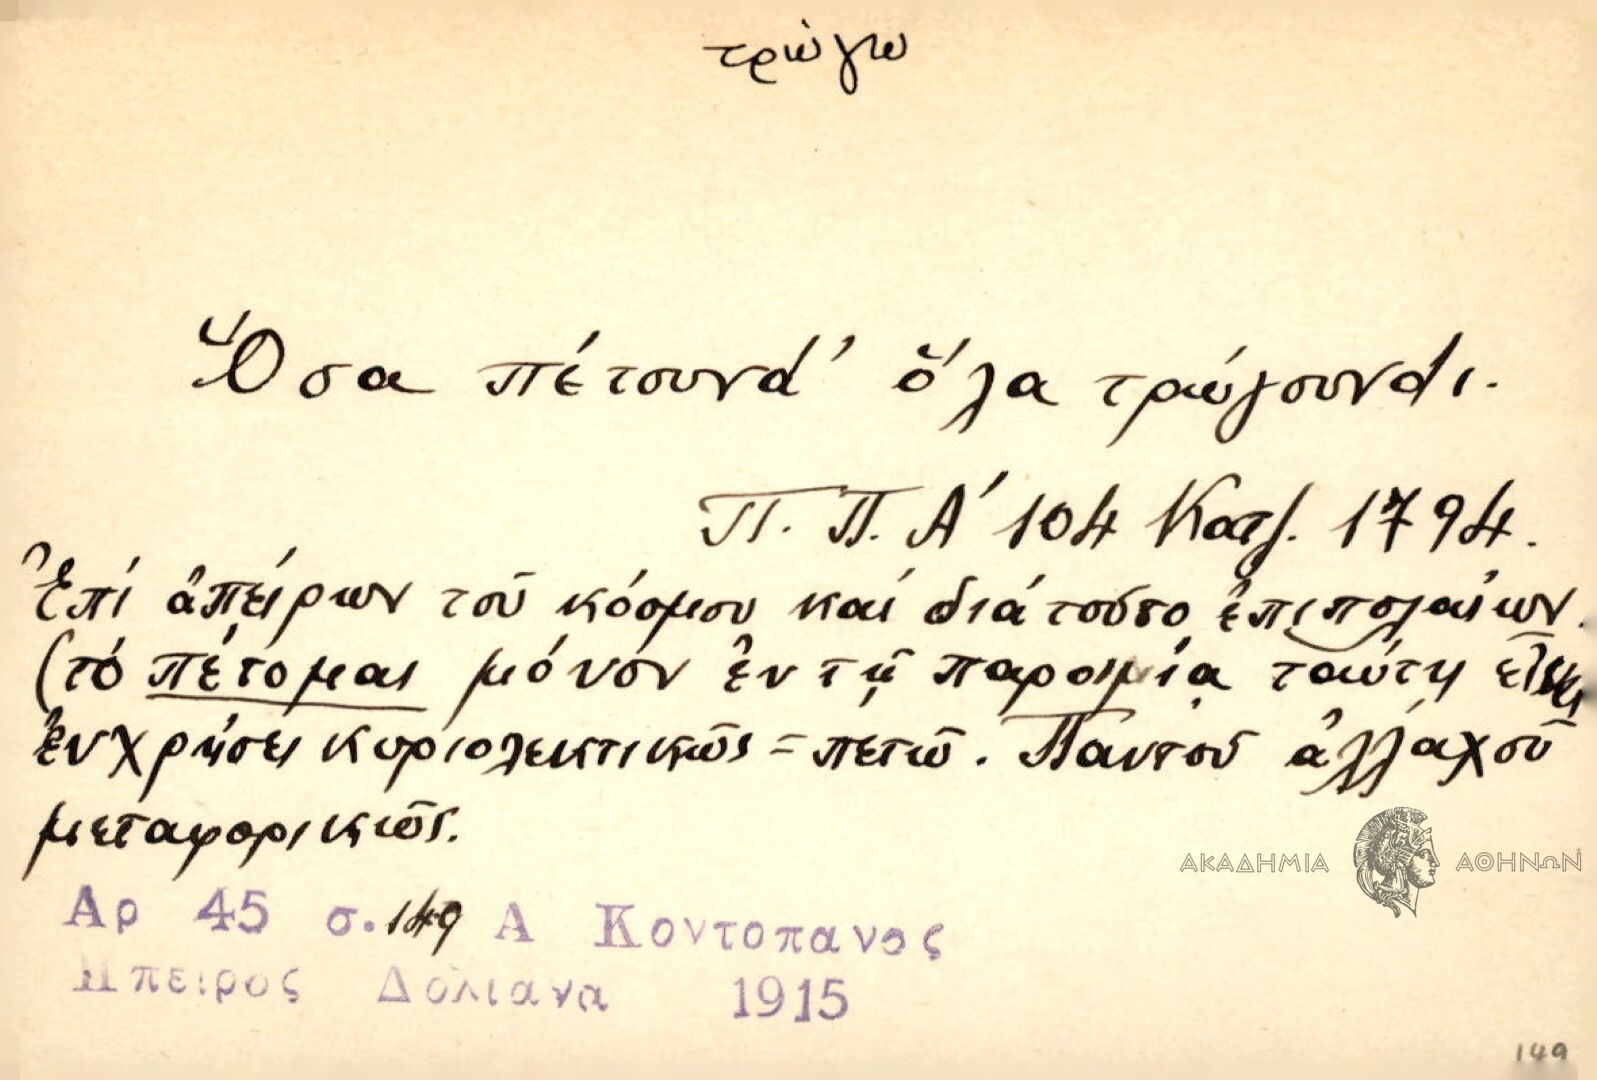 τρώγω
Ὅσα πέτουνd' ὅλα τρώγουνdι.
Π. Π. Α' 104 Κατζ. 1794.
Ἐπί ἀπείρων τοῦ κόσμου καί διά τοῦτο ἐπιπολαίων.
(τό πέτομαι μόνον ἐν τῇ παροιμίᾳ ταύτῃ
ἐν χρήσει κυριολεκτικῶς = πετῶ. Παντοῦ ἀλλαχοῦ
μεταφορικῶς.
ΑΚΑΔΗΜΙΑ ΑΘΗΝΩΝ
Αρ 45 σ. 149 Α Κοντοπανος
Ηπειρος Δολιανα 1915
149